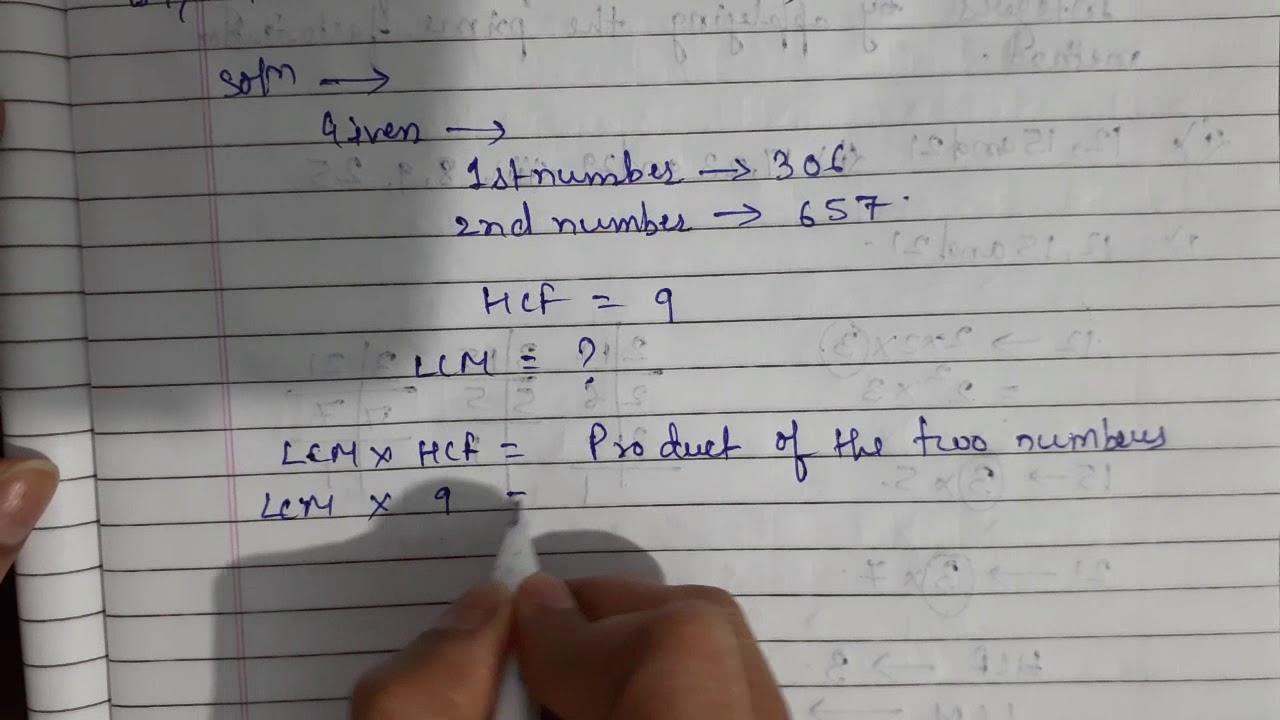 Soln →
Given →
1st number → 306
2nd number → 657.
HCF = 9
LCM = ?
LCM × HCF = Product of the two numbers
LCM × 9 =